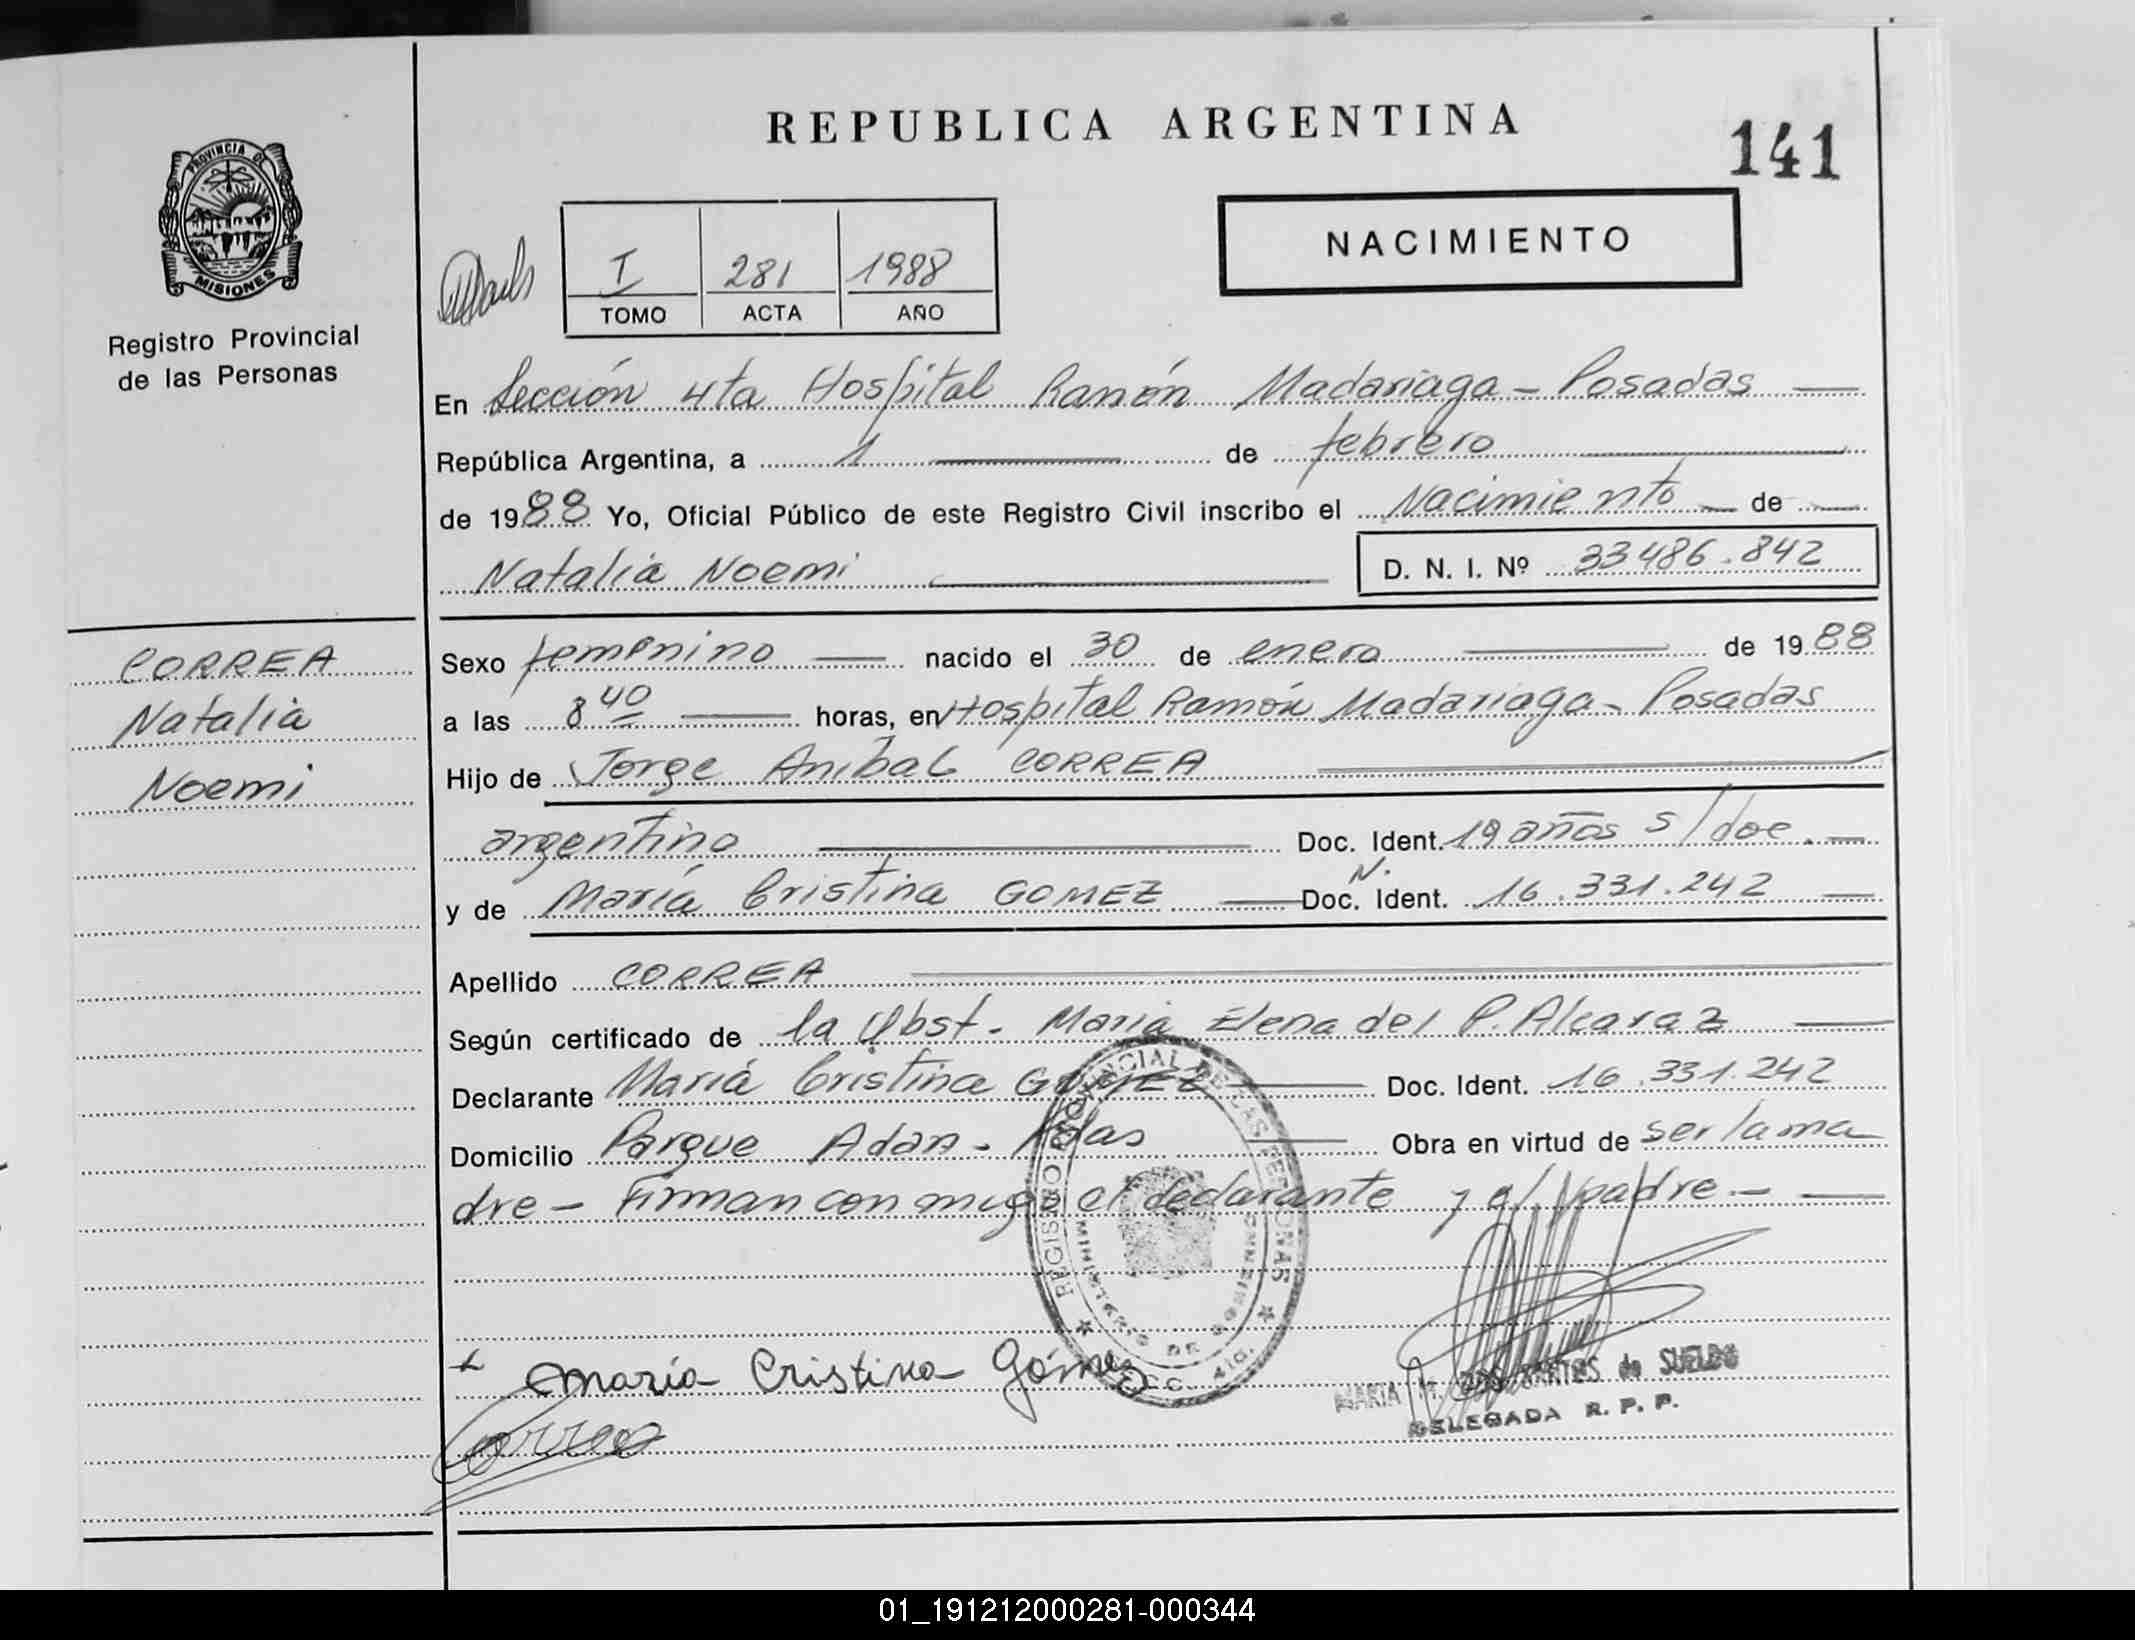 REPUBLICA ARGENTINA
141
PROVINCIA DE
MISIONES
Registro Provincial
de las Personas
NACIMIENTO
I 281 1988
TOMO ACTA AÑO
En Sección 4ta Hospital Ramón Madariaga - Posadas
República Argentina, a 1 de febrero
de 1988 Yo, Oficial Público de este Registro Civil inscribo el Nacimiento de
Natalia Noemi D. N. I. Nº 33486.842
CORREA
Natalia
Noemi
Sexo femenino nacido el 30 de enero de 1988
a las 8 40 horas, en Hospital Ramón Madariaga - Posadas
Hijo de Jorge Anibal CORREA
argentino Doc. Ident. 19 años s/doc.
y de María Cristina GOMEZ N. Doc. Ident. 16.331.242
Apellido CORREA
Según certificado de la Obst. Maria Elena del P. Alcaraz
Declarante María Cristina GOMEZ Doc. Ident. 16.331.242
Domicilio Parque Adan - Pdas Obra en virtud de ser la ma
dre - Firman conmigo el declarante y el padre.-
REGISTRO PROVINCIAL DE LAS PERSONAS
María Cristina Gómez
Correa
MARIA de SUELDO
DELEGADA R. P. P.
01_191212000281-000344